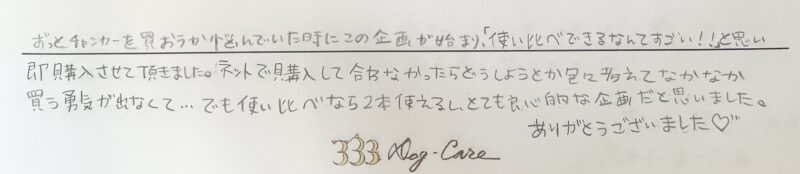 ずっとチャンカーを買おうか悩んでいた時にこの企画が始まり、「使い比べできるなんてすごい！！」と思い
即購入させて頂きました。ネットで購入して合わなかったらどうしようとか色々考えてなかなか
買う勇気が出なくて…でも使い比べなら2本使えるし、とても良心的な企画だと思いました。
ありがとうございました♡
333 Dog-Care